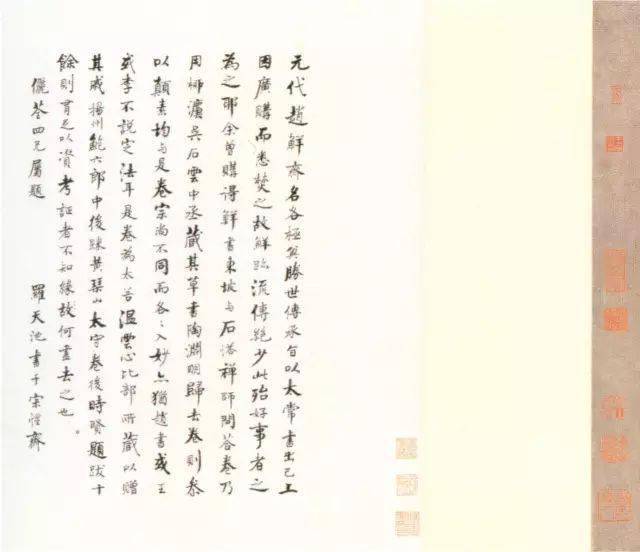 元代趙鮮齊名各極其勝世傳承旨以太常書出己上
因廣購而悉焚之故鮮跡流傳絕少此殆好事者之
為之耶余曾購得鮮書東坡與石塔禪師問答卷乃
用柳濃吳石雲中丞藏其草書陶淵明歸去卷則參
以顛素均與是卷宗尚不同而各各入妙亦猶趙書或王
或李不說定法耳是卷為太善溫雲心比部所藏以贈
其戚揚州鮑六郎中後疎黃琴山太守卷後時賢題跋十
餘則胥足以資考証者不知緣故何盡去之也
儷荃四兄屬題
羅天池書于宗愷齋